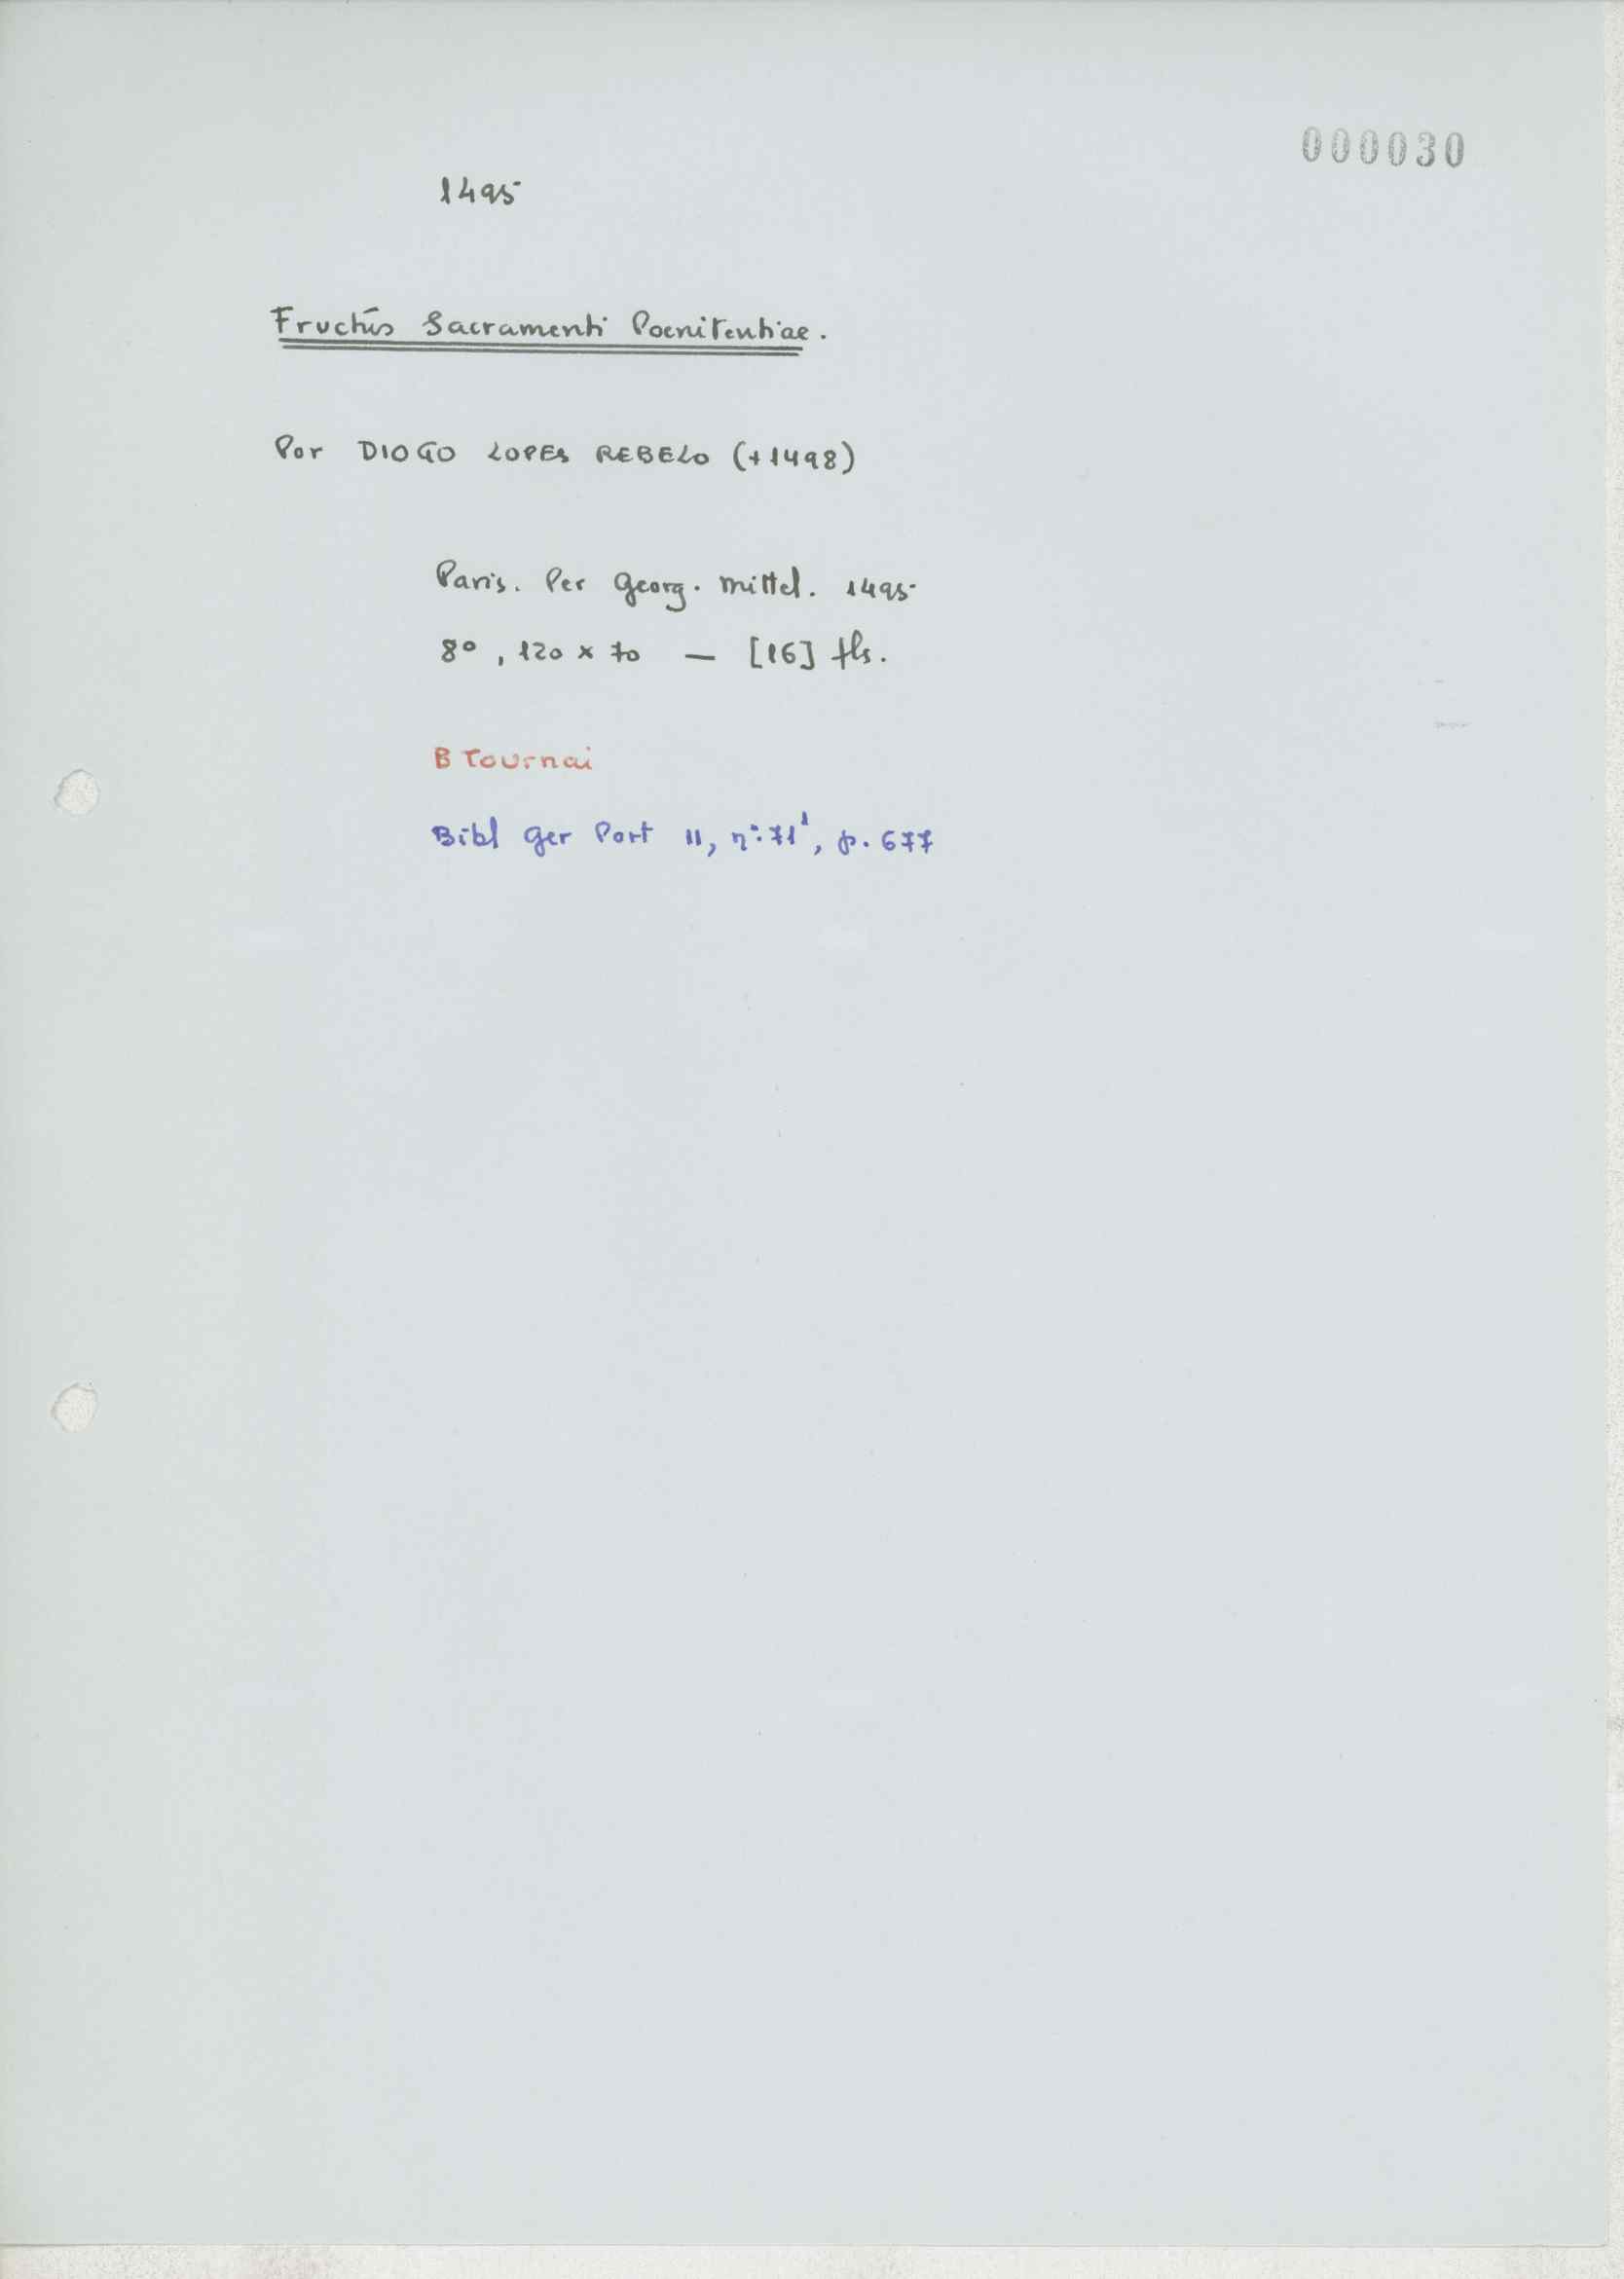 000030
1495
Fructus Sacramenti Poenitentiae.
Por DIOGO LOPES REBELO (+1498)
Paris. Per Georg. Mittel. 1495
8º, 120 x 70 — [16] fls.
B Tournai
Bibl Ger Port II, nº 71¹, p. 677